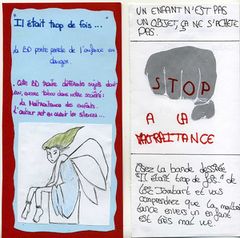 "Il était trop de fois..."
La BD porte parole de l'enfance en
danger.
Cette BD traite différents sujets dont
un, encore tabou dans notre société:
la Maltraitance des enfants.
L'auteur met en avant les silences...
UN ENFANT N'EST PAS
UN OBJET, ÇA NE S'ACHÈTE
PAS.
STOP
A LA
MALTRAITANCE
Lisez la bande dessinée
"Il était trop de fois" de
Lise Joubart et vous
comprendrez que la maltrai
tance envers un enfant
est très mal vue.